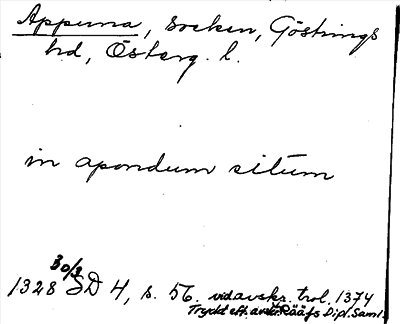 Appuna, socken, Göstrings
hd, Österg. l.
in apondum situm
30/3
1328 SD 4, s. 56. vidavskr. trol. 1374
Tryckt eft. Rääfs Dipl. Saml.